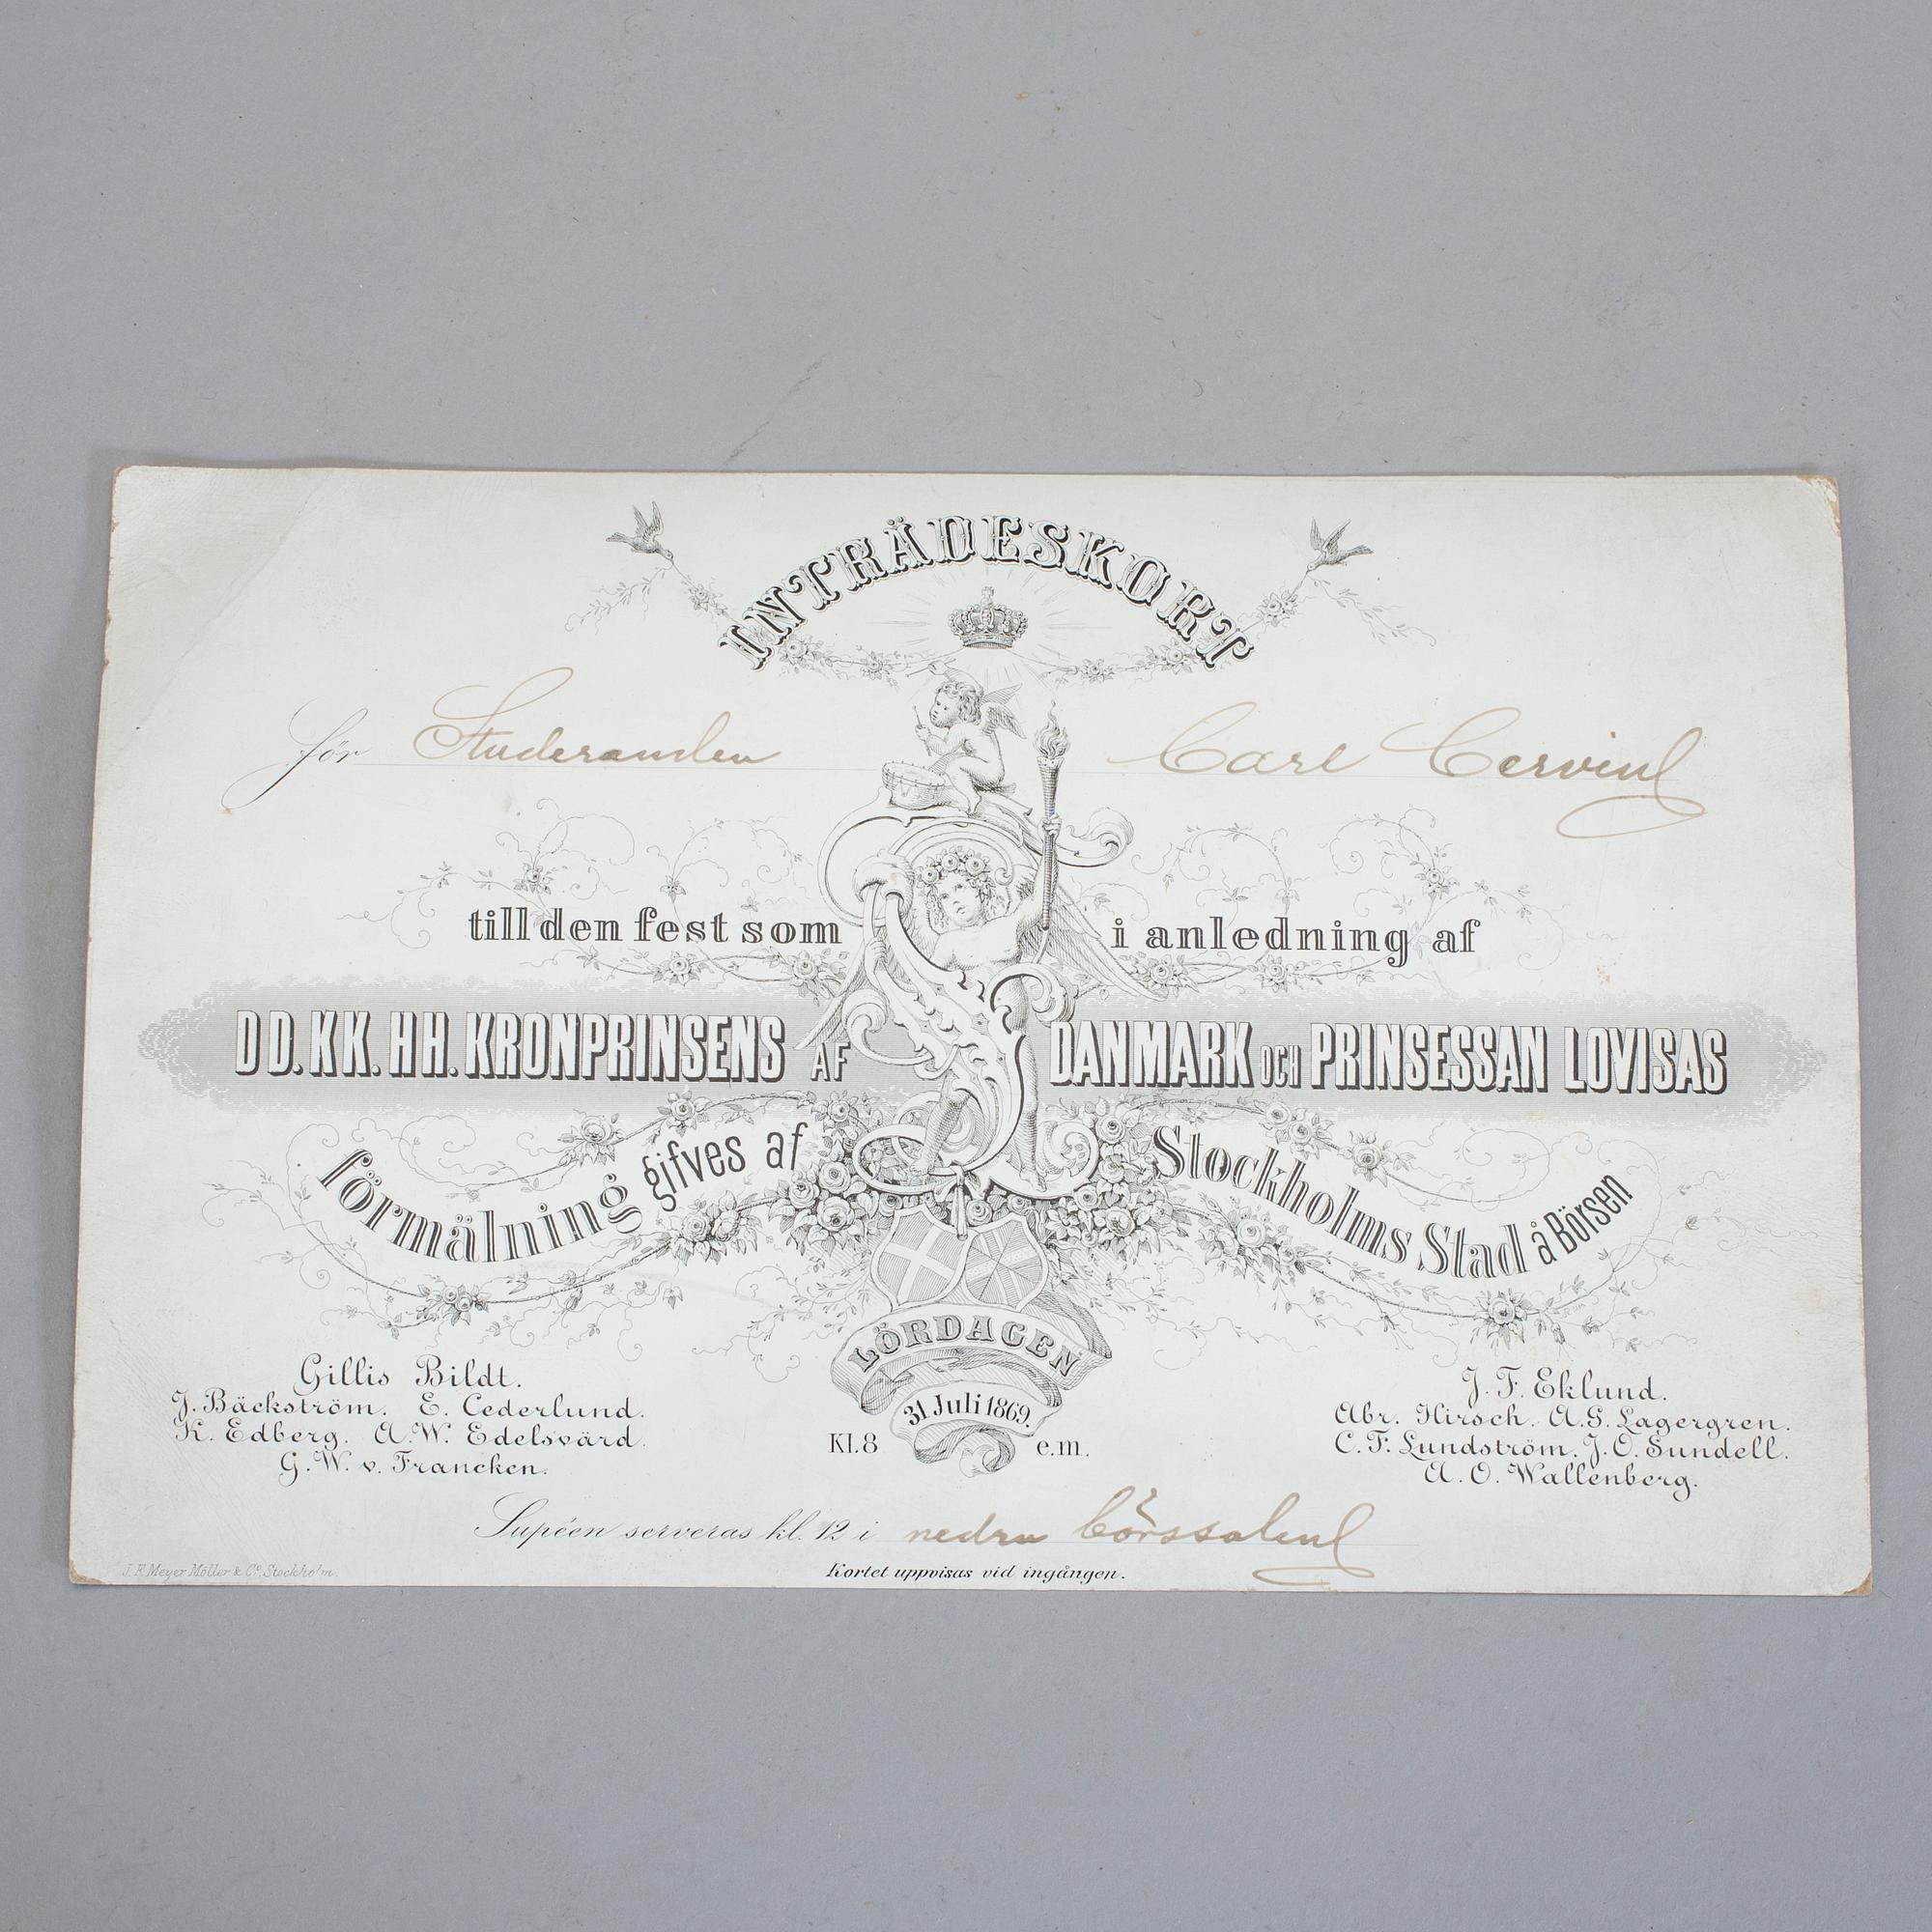 INTRÄDESKORT
för Studeranden Carl Cervin
till den fest som i anledning af
DD. KK. HH. KRONPRINSENS AF DANMARK OCH PRINSESSAN LOVISAS
förmälning gifves af Stockholms Stad å Börsen
LÖRDAGEN
31 Juli 1869.
Kl. 8 e.m.
Gillis Bildt.
J. Bäckström. E. Cederlund.
K. Edberg. A. W. Edelsvärd.
G. W. v. Francken.
J. F. Eklund.
Abr. Hirsch. A. G. Lagergren.
C. F. Lundström. J. O. Sundell.
A. O. Wallenberg.
Supéen serveras kl. 12 i nedra börssalen
Kortet uppvisas vid ingången.
J. F. Meyer Möller & Co. Stockholm.